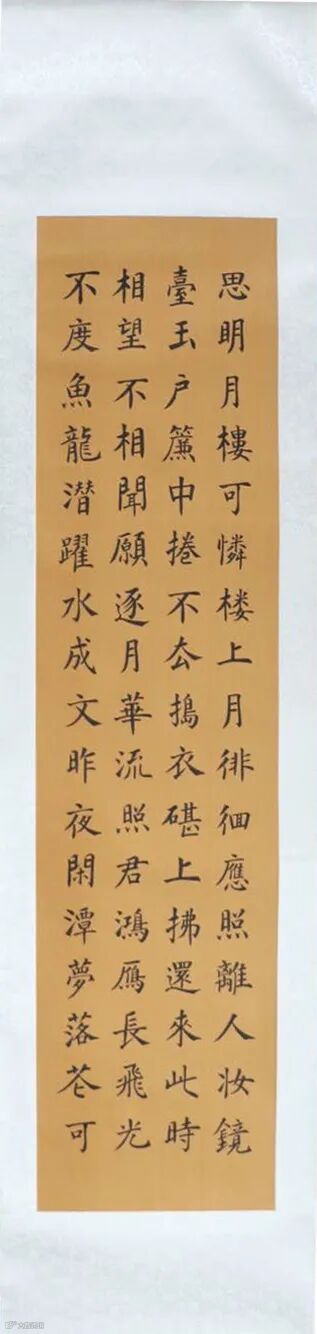 思明月樓可憐楼上月徘徊應照離人妆鏡
臺玉户簾中捲不厺搗衣碪上拂還來此時
相望不相聞願逐月華流照君鴻鴈長飛光
不度魚龍潜躍水成文昨夜閑潭夢落花可